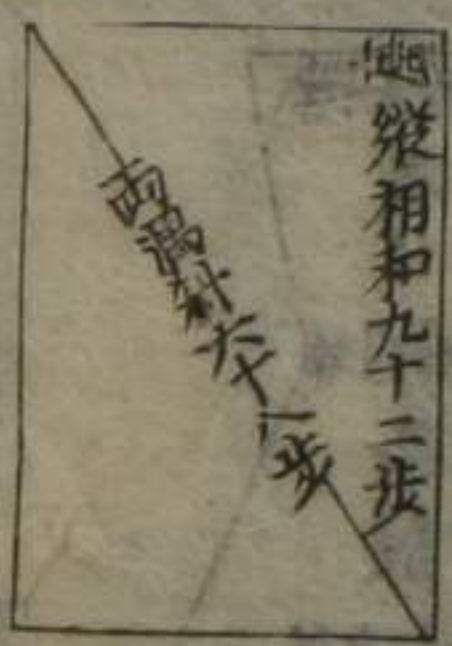 縱相和九十二步
両隅斜六十八步